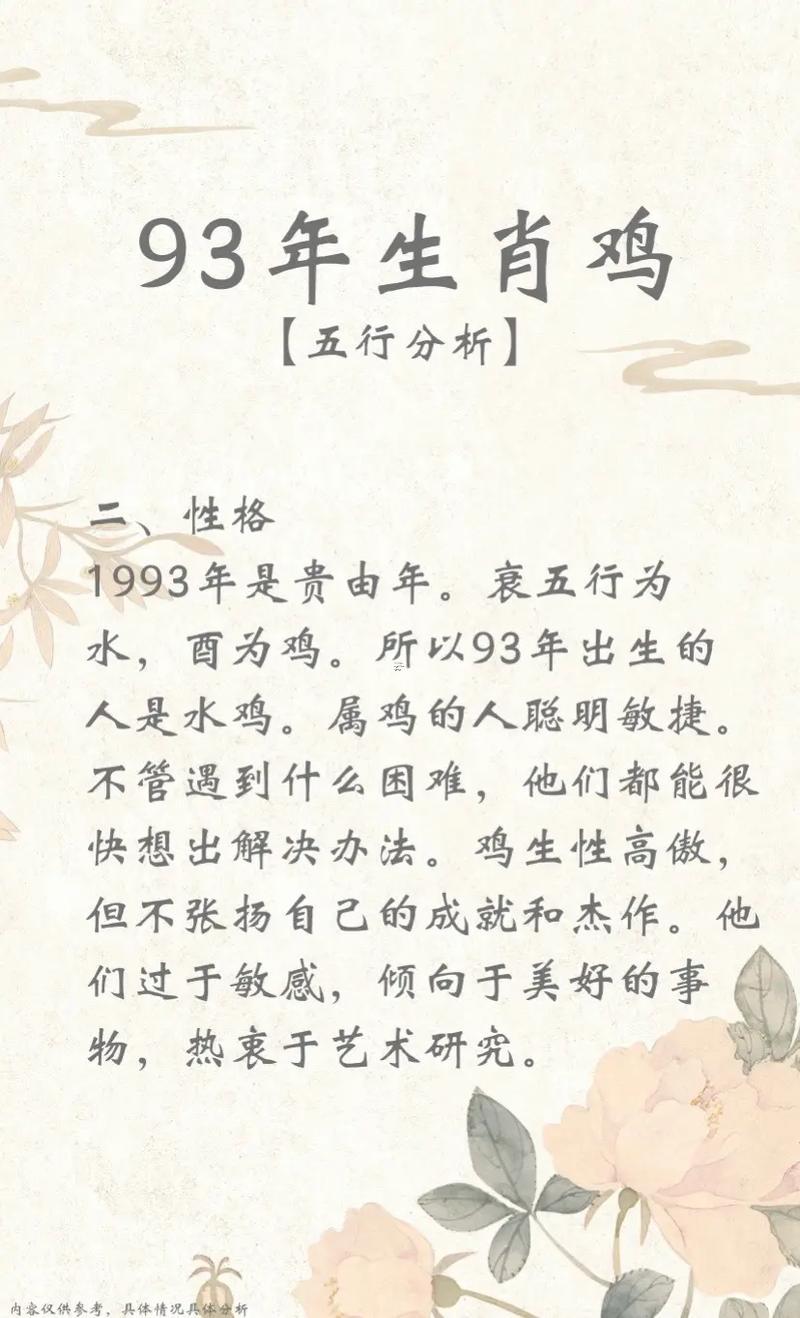 93年生肖鸡
【五行分析】
二、性格
1993年是贵由年。衰五行为
水，酉为鸡。所以93年出生的
人是水鸡。属鸡的人聪明敏捷。
不管遇到什么困难，他们都能很
快想出解决办法。鸡生性高傲，
但不张扬自己的成就和杰作。他
们过于敏感，倾向于美好的事
物，热衷于艺术研究。
内容仅供参考，具体情况具体分析